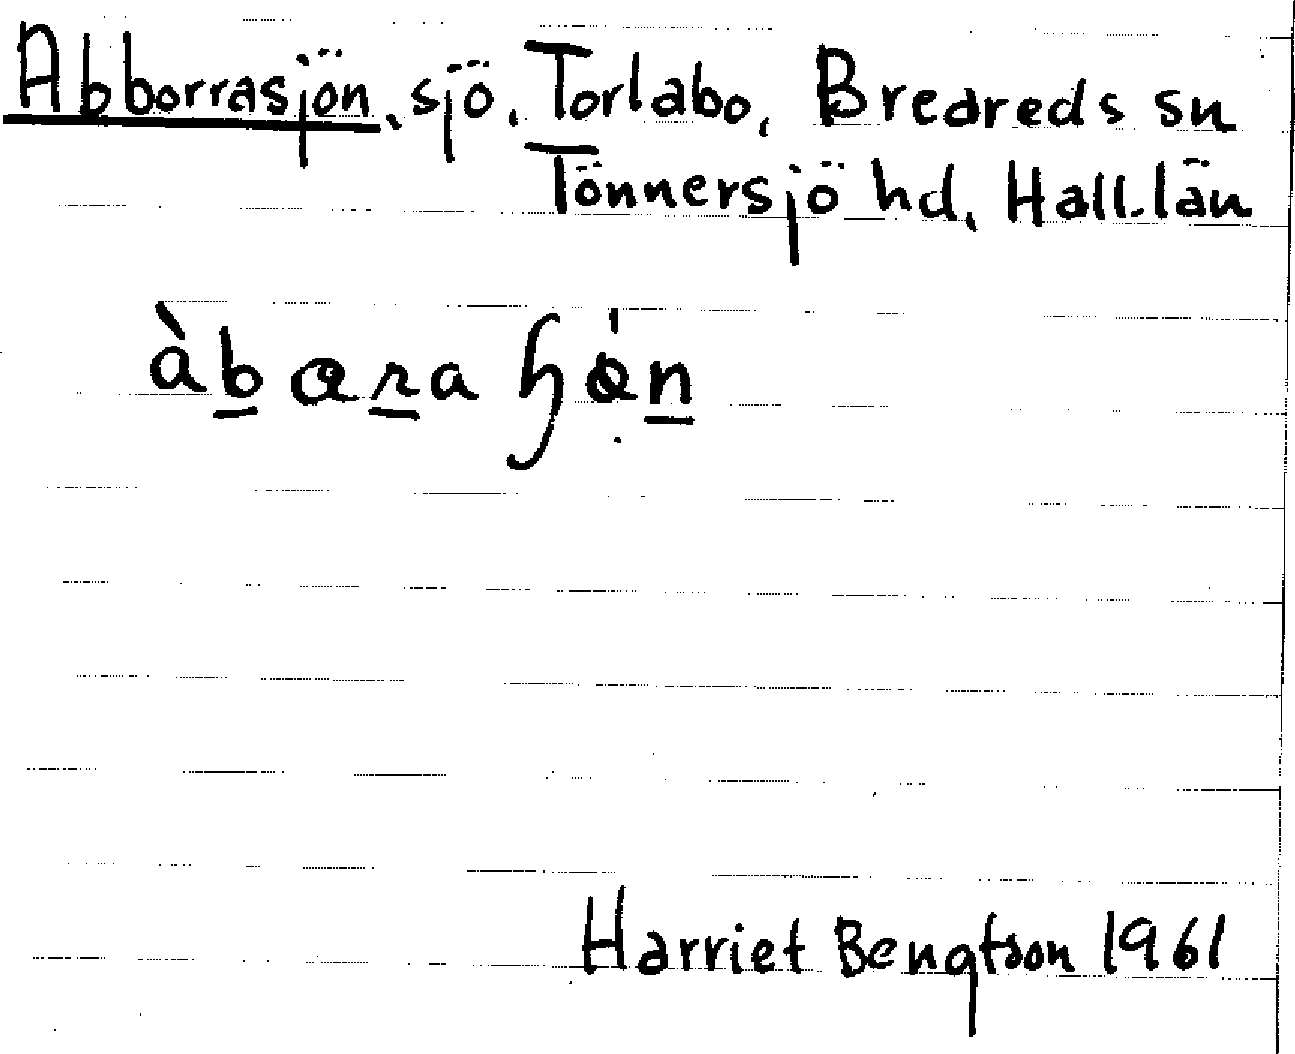 Abborrasjön, sjö. Torlabo, Breareds sn
Tönnersjö hd, Hall. län
Harriet Bengtson 1961